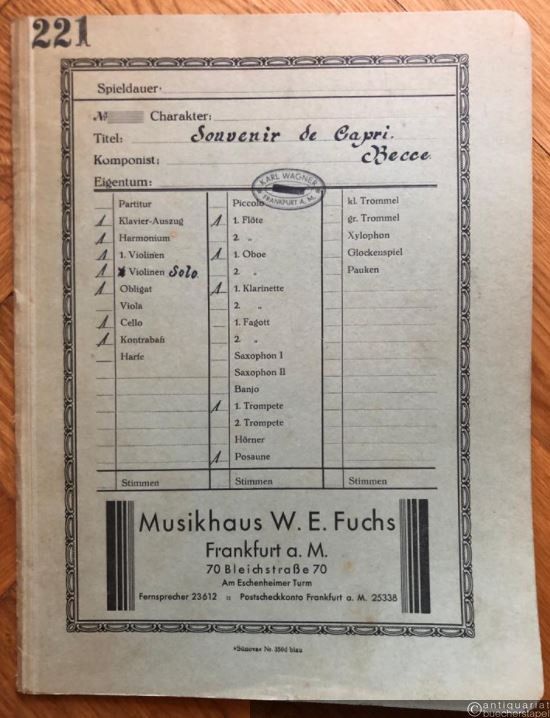 221
Spieldauer:
№ Charakter:
Titel: Souvenir de Capri.
Komponist: Becce
Eigentum:
KARL WAGNER
FRANKFURT A. M.
Partitur
1 Klavier-Auszug
1 Harmonium
1 1. Violinen
1 Violinen Solo
1 Obligat
Viola
1 Cello
1 Kontrabaß
Harfe
Stimmen
Piccolo
1 1. Flöte
2. „
1 1. Oboe
2. „
1 1. Klarinette
2. „
1. Fagott
2. „
Saxophon I
Saxophon II
Banjo
1 1. Trompete
2. Trompete
Hörner
1 Posaune
Stimmen
kl. Trommel
gr. Trommel
Xylophon
Glockenspiel
Pauken
Stimmen
Musikhaus W. E. Fuchs
Frankfurt a. M.
70 Bleichstraße 70
Am Eschenheimer Turm
Fernsprecher 23612 :: Postscheckkonto Frankfurt a. M. 25338
»Sünova« Nr. 350d blau
antiquariat
buecherstapel